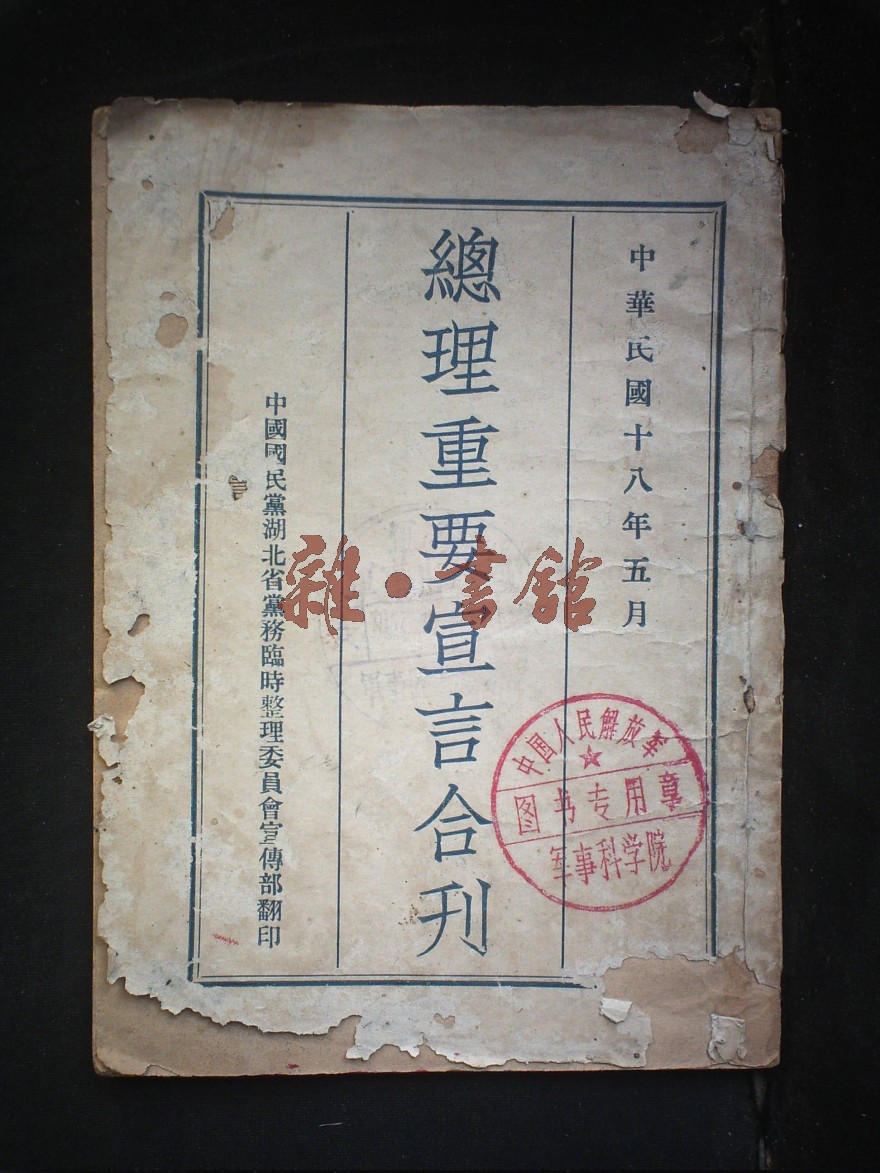 中華民國十八年五月
總理重要宣言合刊
中國國民黨湖北省黨務臨時整理委員會宣傳部翻印
雜·書館
中国人民解放军
图书专用章
军事科学院